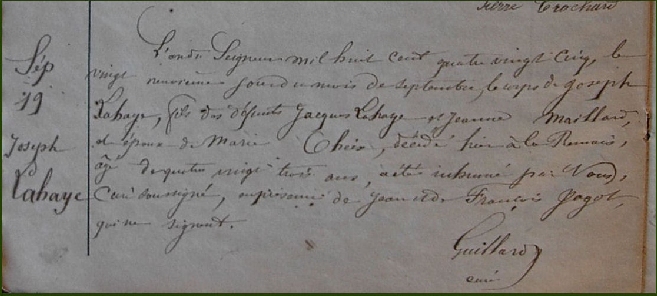 Pierre Trochard
Sép
19
Joseph
Lahaye
L'an du Seigneur mil huit cent quatre vingt cinq, le
vingt neuvième jour du mois de septembre, le corps de Joseph
Lahaye, fils des défunts Jacques Lahaye et Jeanne Maillard,
et époux de Marie décédé hier à la
âgé de quatre vingt trois ans, a été inhumé par Nous,
Curé soussigné, en présence de Jean et de François
qui ne signent.
Guillard
curé